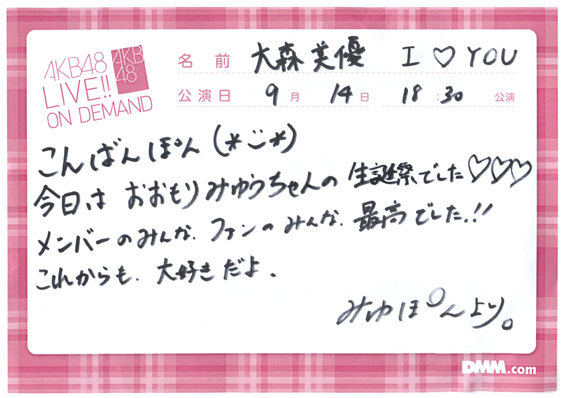 AKB48
LIVE!!
ON DEMAND
AKB
48
名前 大森美優 I ♡ YOU
公演日 9月 14日 18:30 公演
こんばんぽん(*¨*)
今日は おおもりみゅうちゃんの 生誕祭でした♡♡♡
メンバーのみんな、ファンのみんな、最高でした!!
これからも、大好きだよ、
みゆぽんより。
DMM.com